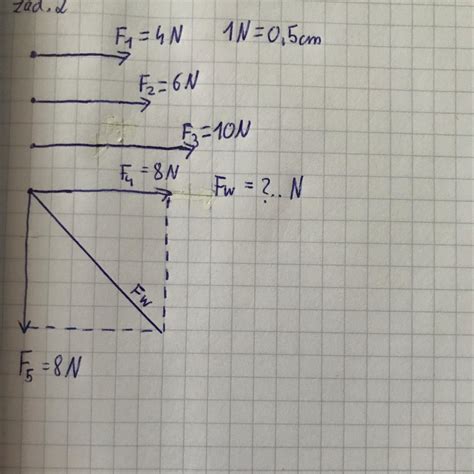 zad. 2
F₁ = 4N 1N = 0,5cm
F₂ = 6N
F₃ = 10N
F₄ = 8N Fw = ?.. N
Fw
F₅ = 8N